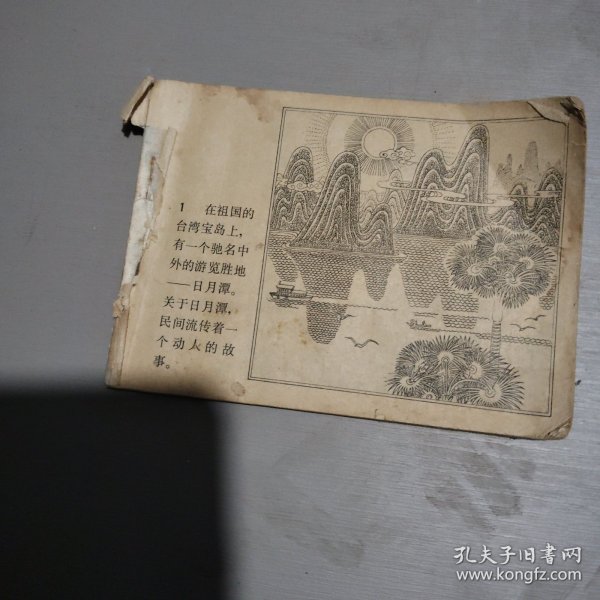 1 在祖国的
台湾宝岛上，
有一个驰名中
外的游览胜地
——日月潭。
关于日月潭，
民间流传着一
个动人的故
事。
孔夫子旧書网
www.kongfz.com